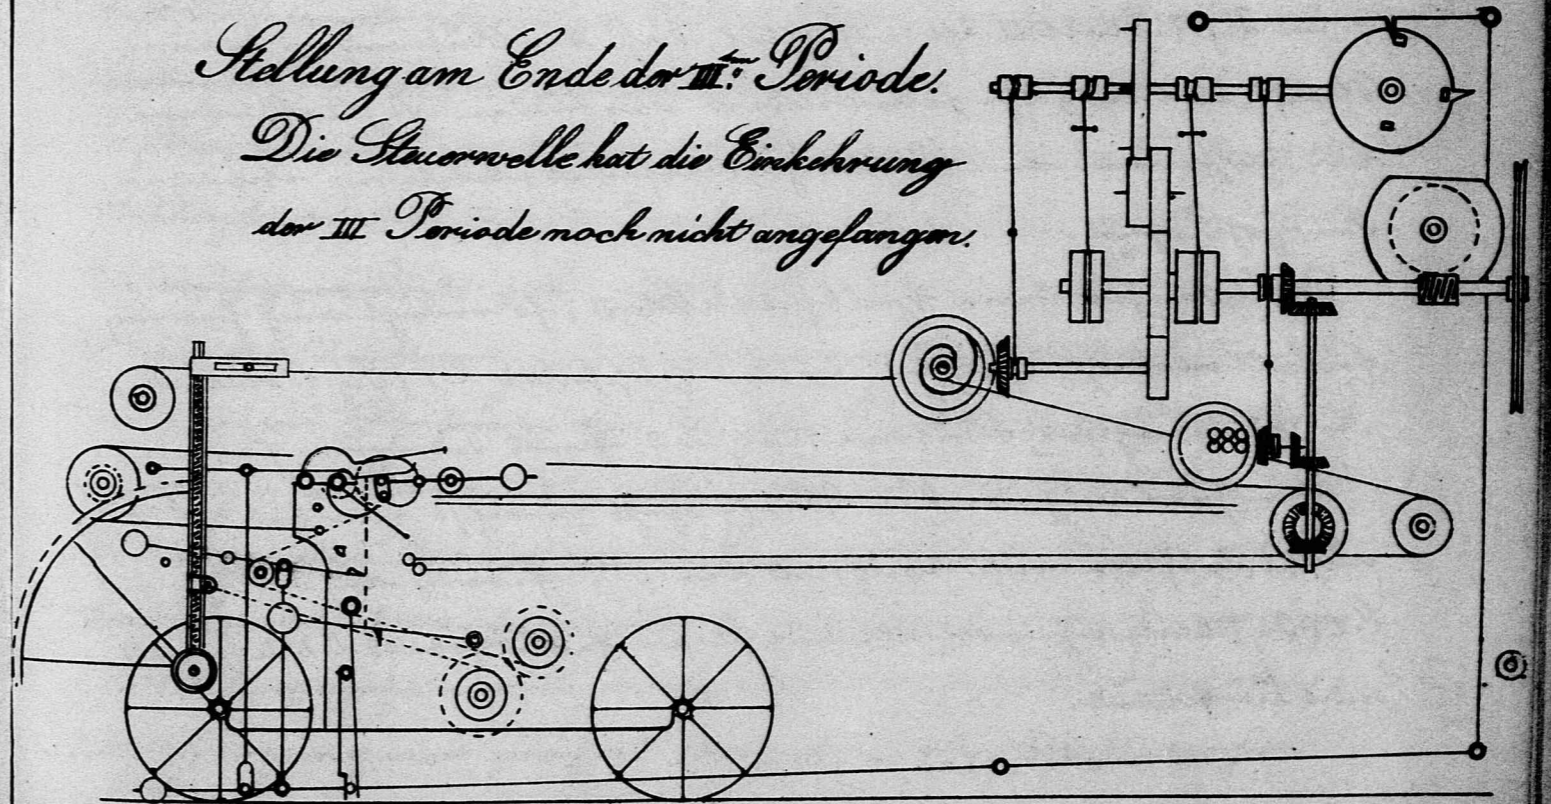 Stellung am Ende der III.ten Periode.
Die Steuerwelle hat die Einkehrung
der III Periode noch nicht angefangen.